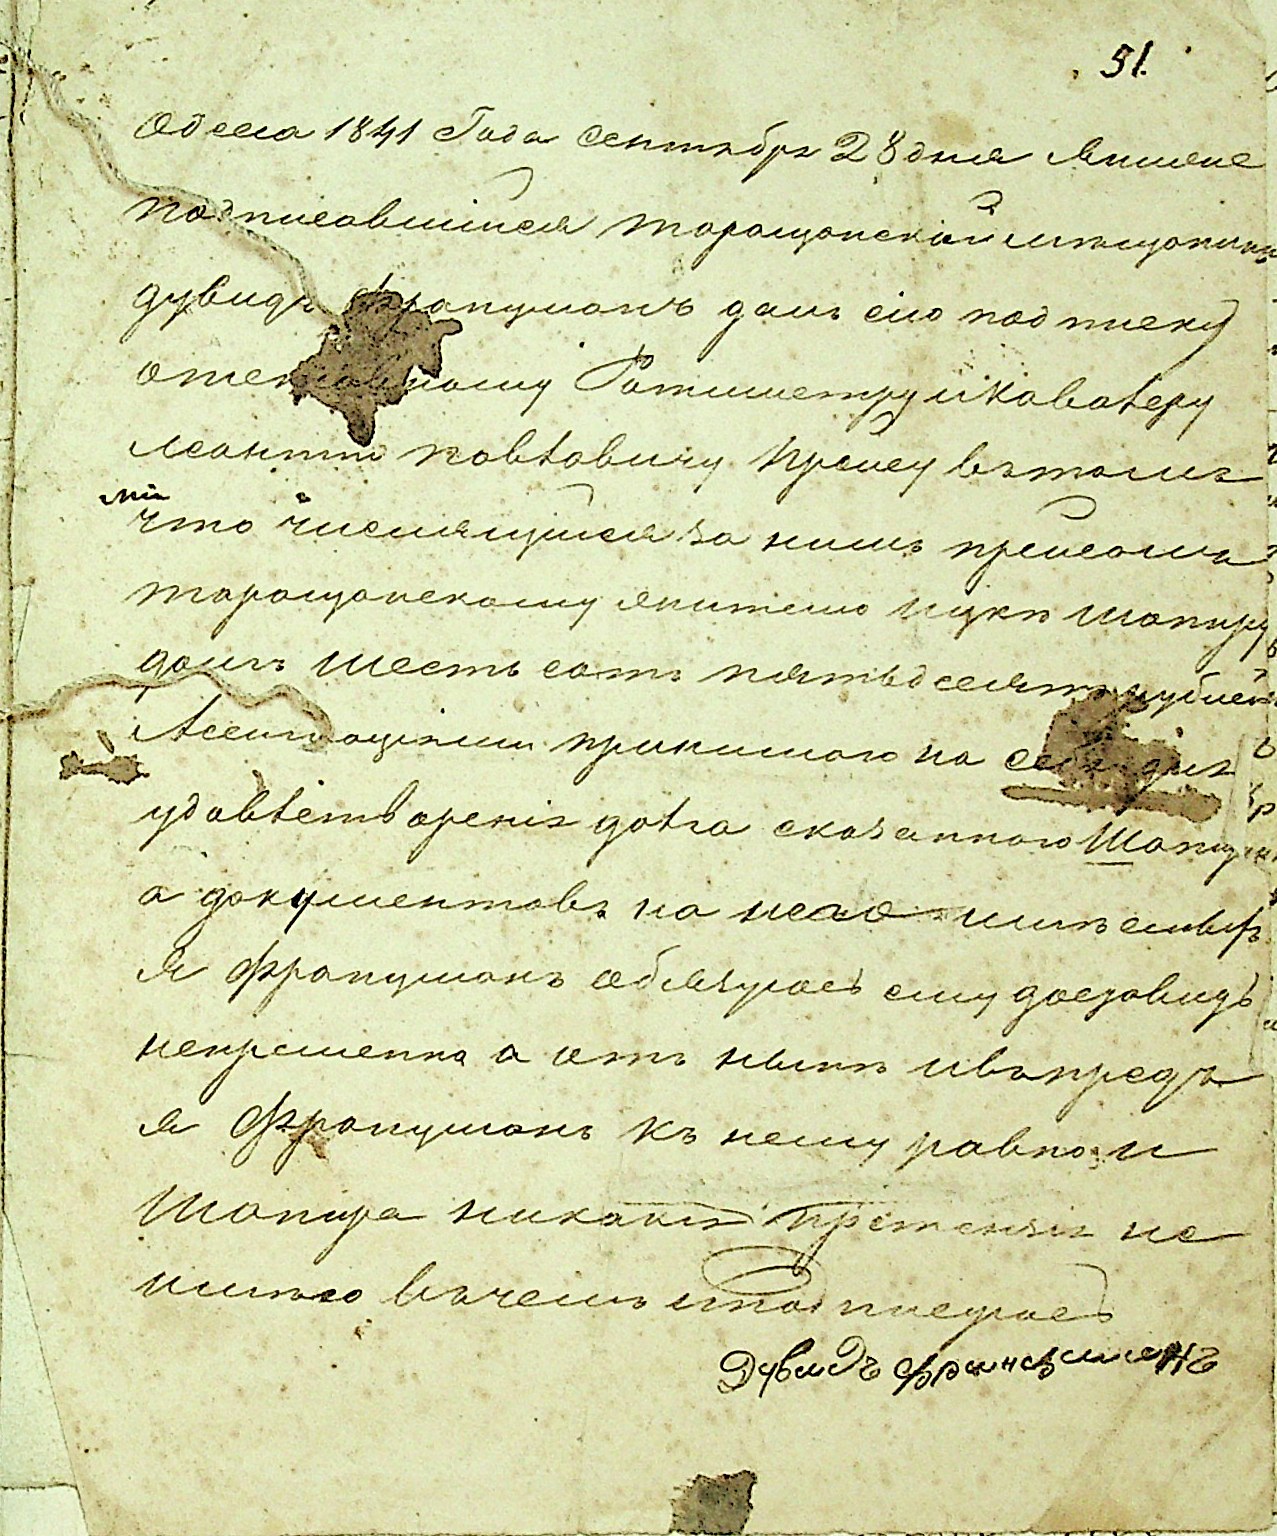 51.
Одесса 1841 Года Сентября 28 дня я ниже
подписавшийся таращанский мещанинъ
дувидъ Францманъ далъ сію подписку
отставному Ротмистру и Кавалеру
леонтію павловичу в томъ
мнѣ
что числящійся за нимъ
таращанскому жителю ицкѣ шапиру
долгъ шесть сотъ пятьдесятъ рублей
Ассигнаціями принимаю на себя для
удовлетворенія долга сказанного Шапиру
а документовъ на него
я Францманъ обязуюсь ему доставить
непременно а отъ нынѣ и впредъ
я Францманъ къ нему равно и
Шапира никакихъ претензіи не
имѣю въ чемъ и подписуюсь
Дувидъ Францманъ